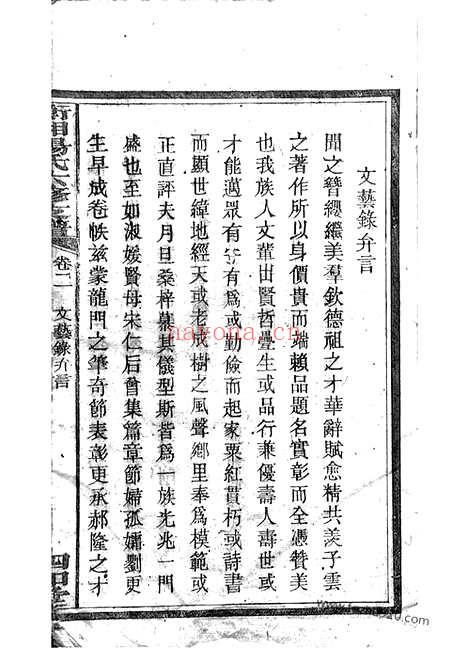 文藝錄弁言
聞之簪纓繼美羣欽德祖之才華辭賦愈精共羨子雲
之著作所以身價貴而端賴品題名實彰而全憑贊美
也我族人文輩出賢哲疊生或品行兼優壽人壽世或
才能邁眾有守有爲或勤儉而起家粟紅貫朽或詩書
而顯世緯地經天或老成樹之風聲鄉里奉爲模範或
正直評夫月旦桑梓慕其儀型斯皆爲一族光兆一門
盛也至如淑媛賢母宋仁后曾集篇章節婦孤孀劉更
生早成卷帙兹蒙龍門之筆奇節表彰更承郝隆之才
卷二 文藝錄弁言
四知堂
nayona.cn